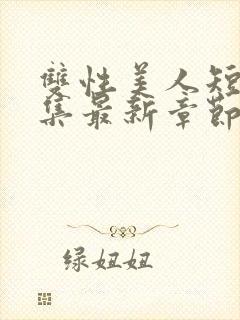 雙性美人短
集最新章節
绿妞妞